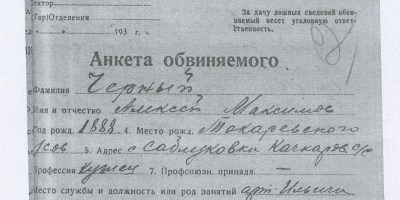 Сектор
Гор/Отделения
193 г.
За дачу ложных сведений обви-
няемый несет уголовную ответ-
ственность.
Анкета обвиняемого
Фамилия Черный
Имя и отчество Алексей Максимов
Год рожд. 1888 4. Место рожд. Токаревского
5. Адрес с Саблуковки
Профессия кузнец 7. Профсоюзн. принадл. —
Место службы и должность или род занятий арт. Ильича